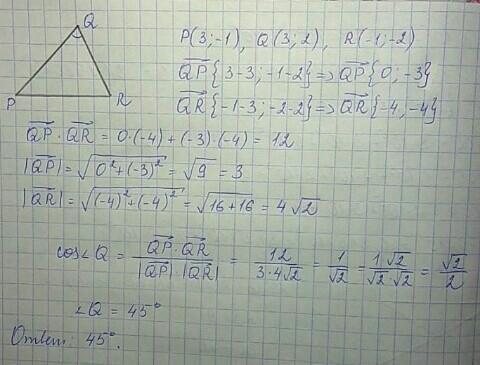 Q
P
R
P(3;-1), Q(3; 2), R(-1;-2)
QP→{3-3; -1-2} => QP→{0; -3}
QR→{-1-3; -2-2} => QR→{-4, -4}
QP→ · QR→ = 0·(-4) + (-3)·(-4) = 12
|QP→| = √(0² + (-3)²) = √9 = 3
|QR→| = √((-4)² + (-4)²) = √(16+16) = 4√2
cos∠Q = (QP→·QR→)/(|QP→|·|QR→|) = 12/(3·4√2) = 1/√2 = 1·√2/(√2·√2) = √2/2
∠Q = 45°
Ответ: 45°.